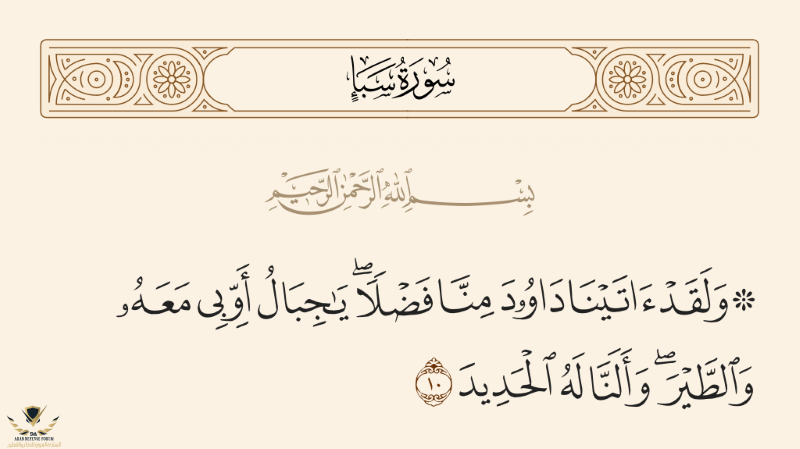 سُورَةُ سَبَإٍ
بِسْمِ ٱللَّهِ ٱلرَّحْمَٰنِ ٱلرَّحِيمِ
۞ وَلَقَدْ ءَاتَيْنَا دَاوُۥدَ مِنَّا فَضْلًاۖ يَٰجِبَالُ أَوِّبِى مَعَهُۥ
وَٱلطَّيْرَۖ وَأَلَنَّا لَهُ ٱلْحَدِيدَ ١٠
DA
ARAB DEFENSE FORUM